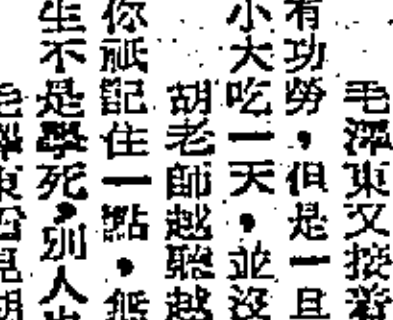 毛澤東又接着
有功勞，但是一旦
小大吃一天，並沒
胡老師越聽越
你祇記住一點，低
生不是學死，別人